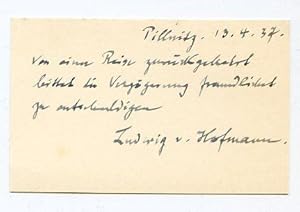 Pillnitz. 13. 4. 37.
Von einer Reise zurückgekehrt
bittet die Verzögerung freundlichst
zu entschuldigen
Ludwig v. Hofmann.